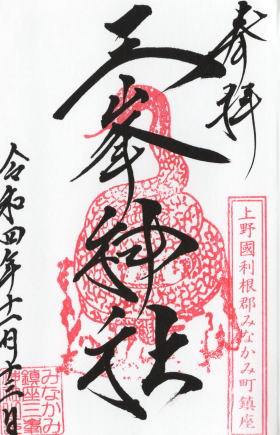 奉拝
上野國利根郡みなかみ町鎮座
三峯神社
令和四年十一月十三日
みなかみ
鎮座三峯